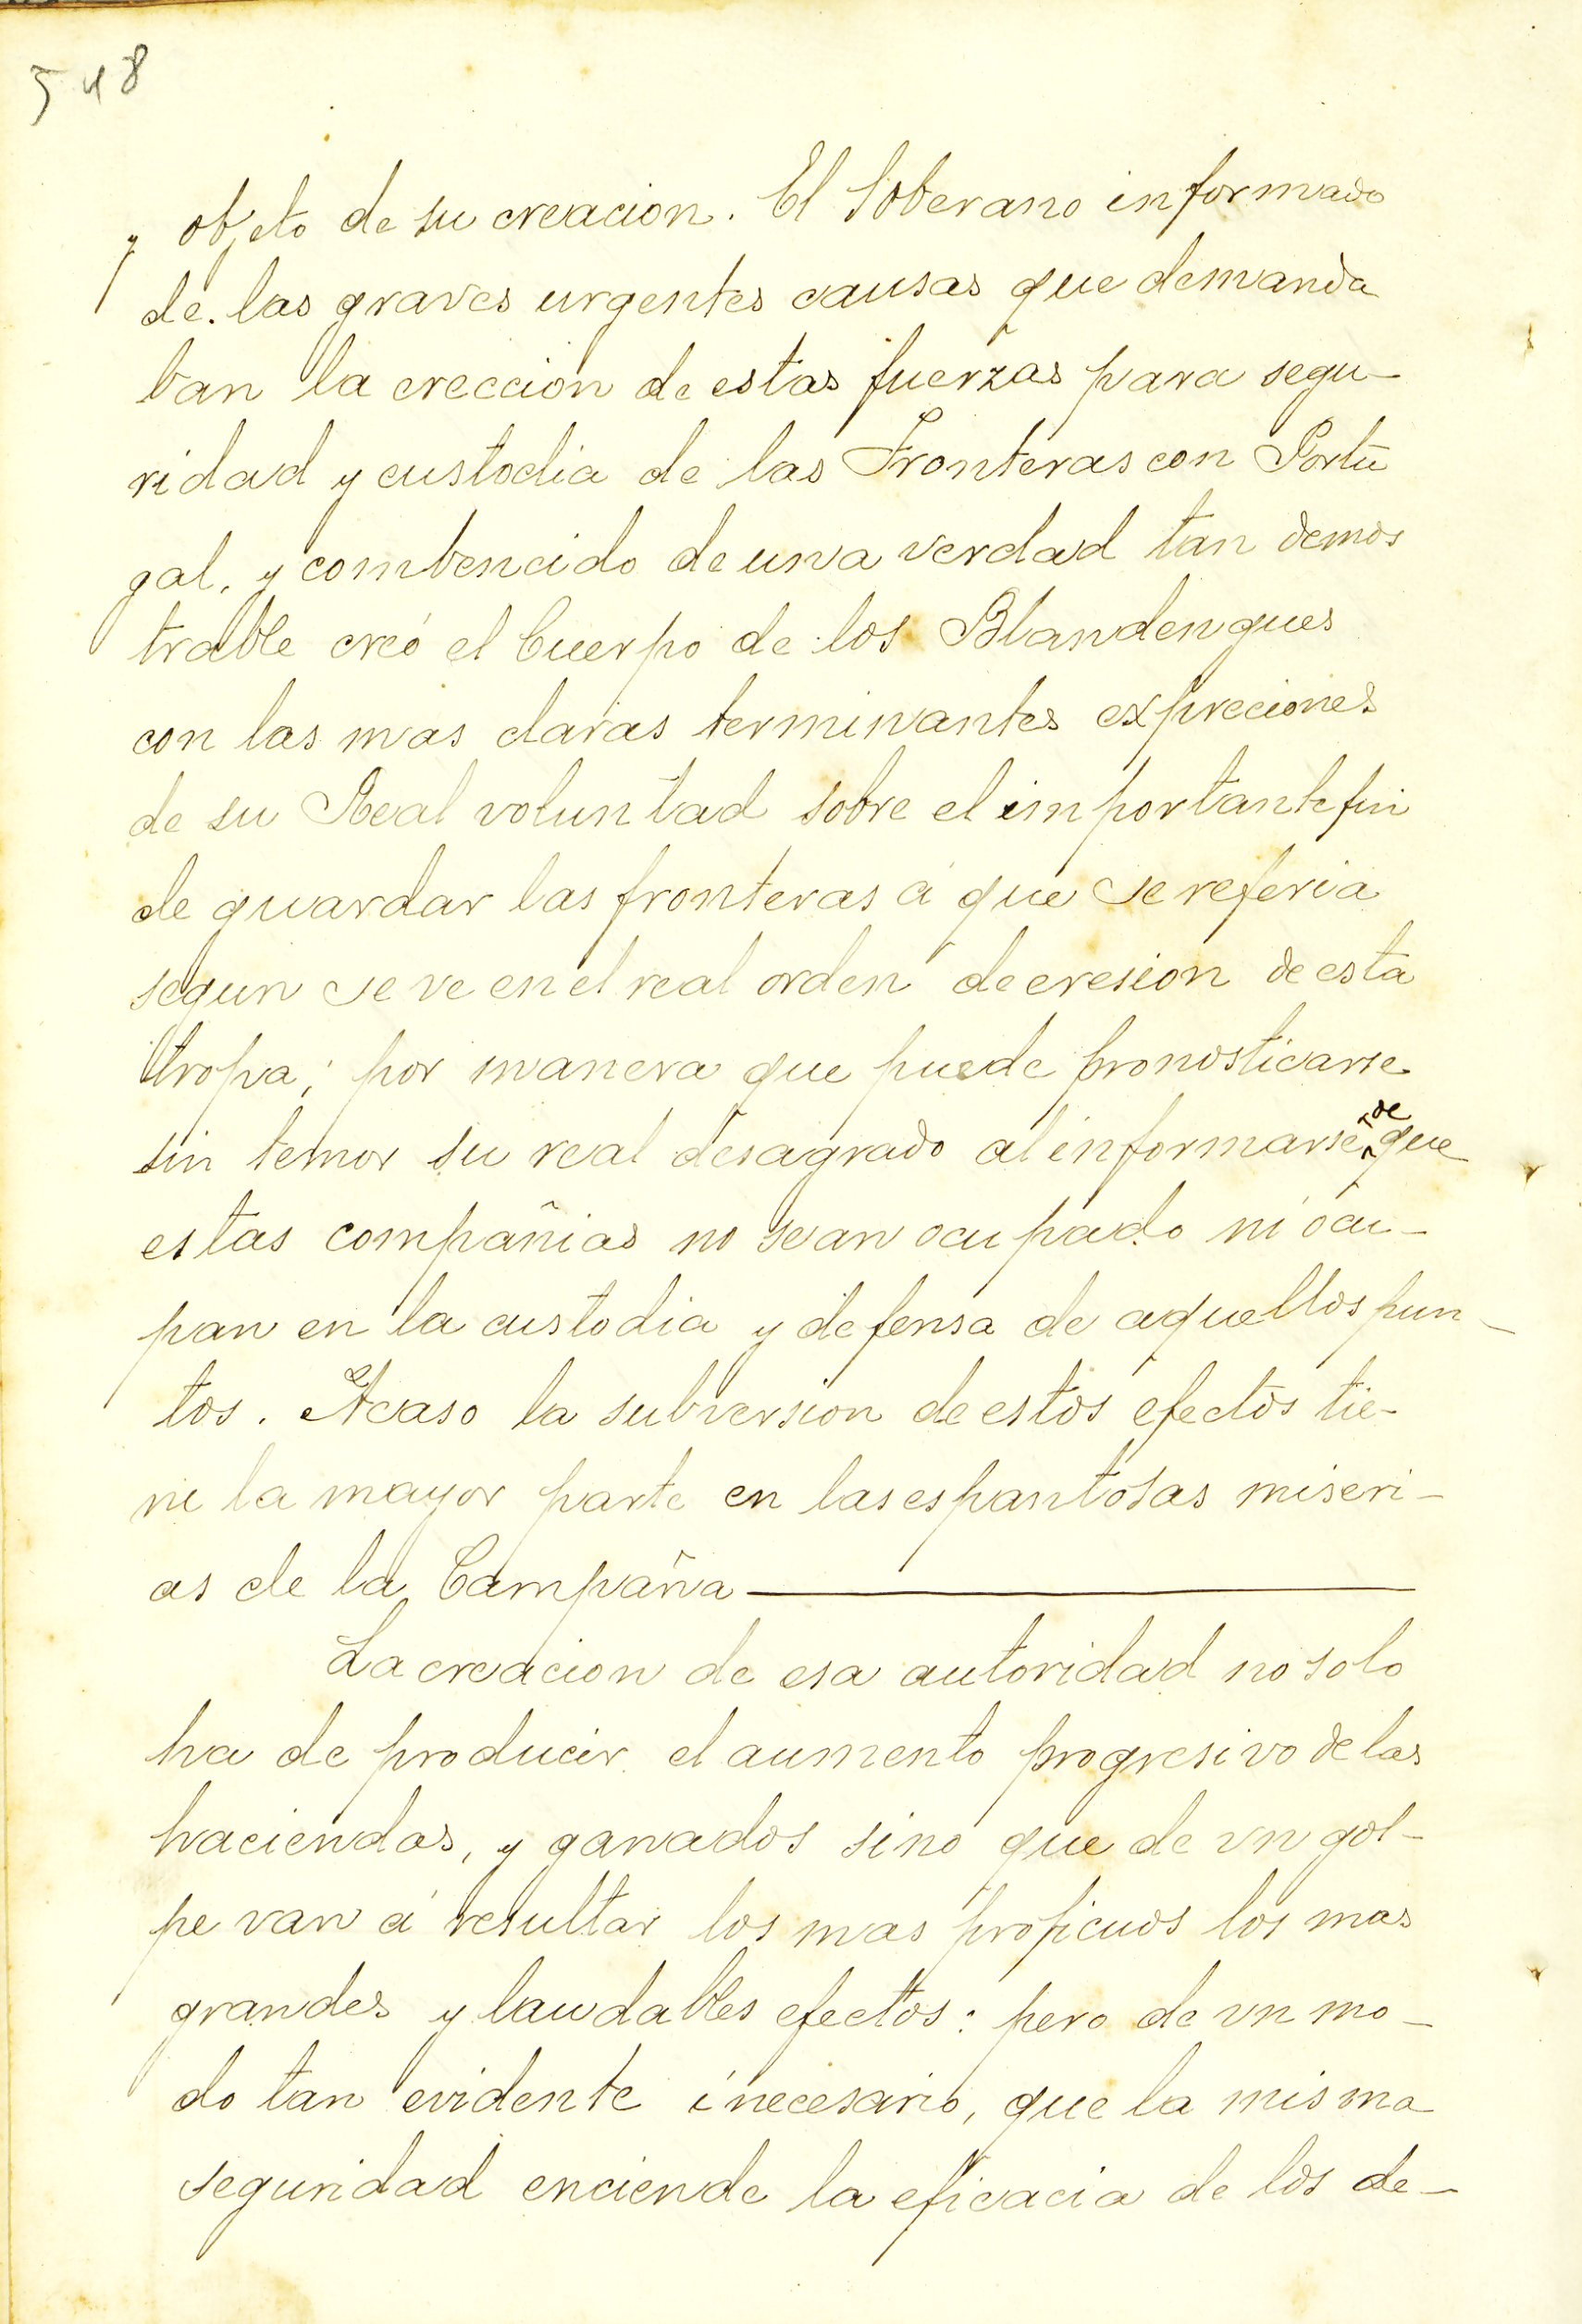 548
y objeto de su creacion. El Soberano informado
de. las graves urgentes causas que demanda
ban la creccion de estas fuerzas para segu-
ridad y custodia de las Fronteras con Portu
gal, y combencido de una verdad tan demos
trable creó el Cuerpo de los Blandengues
con las mas claras terminantes expreciones
de su Real voluntad sobre el importante fin
de guardar las fronteras á que se referia
segun se ve en el real orden de cresion de esta
tropa; por manera que puede pronosticarse
sin temor su real desagrado al informarse de que
estas compañias no sean ocupado ni ocu-
pan en la custodia y defensa de aquellos pun-
tos. Acaso la subversion de estos efectos tie-
ne la mayor parte en las espantosas miseri-
as de la Campaña
La creacion de esa autoridad no solo
ha de producir el aumento progresivo de las
haciendas, y ganados sino que de vn gol-
pe van á resultar los mas proficuos los mas
grandes y laudables efectos: pero de vn mo-
do tan evidente i necesario, que la misma
seguridad enciende la eficacia de los de-